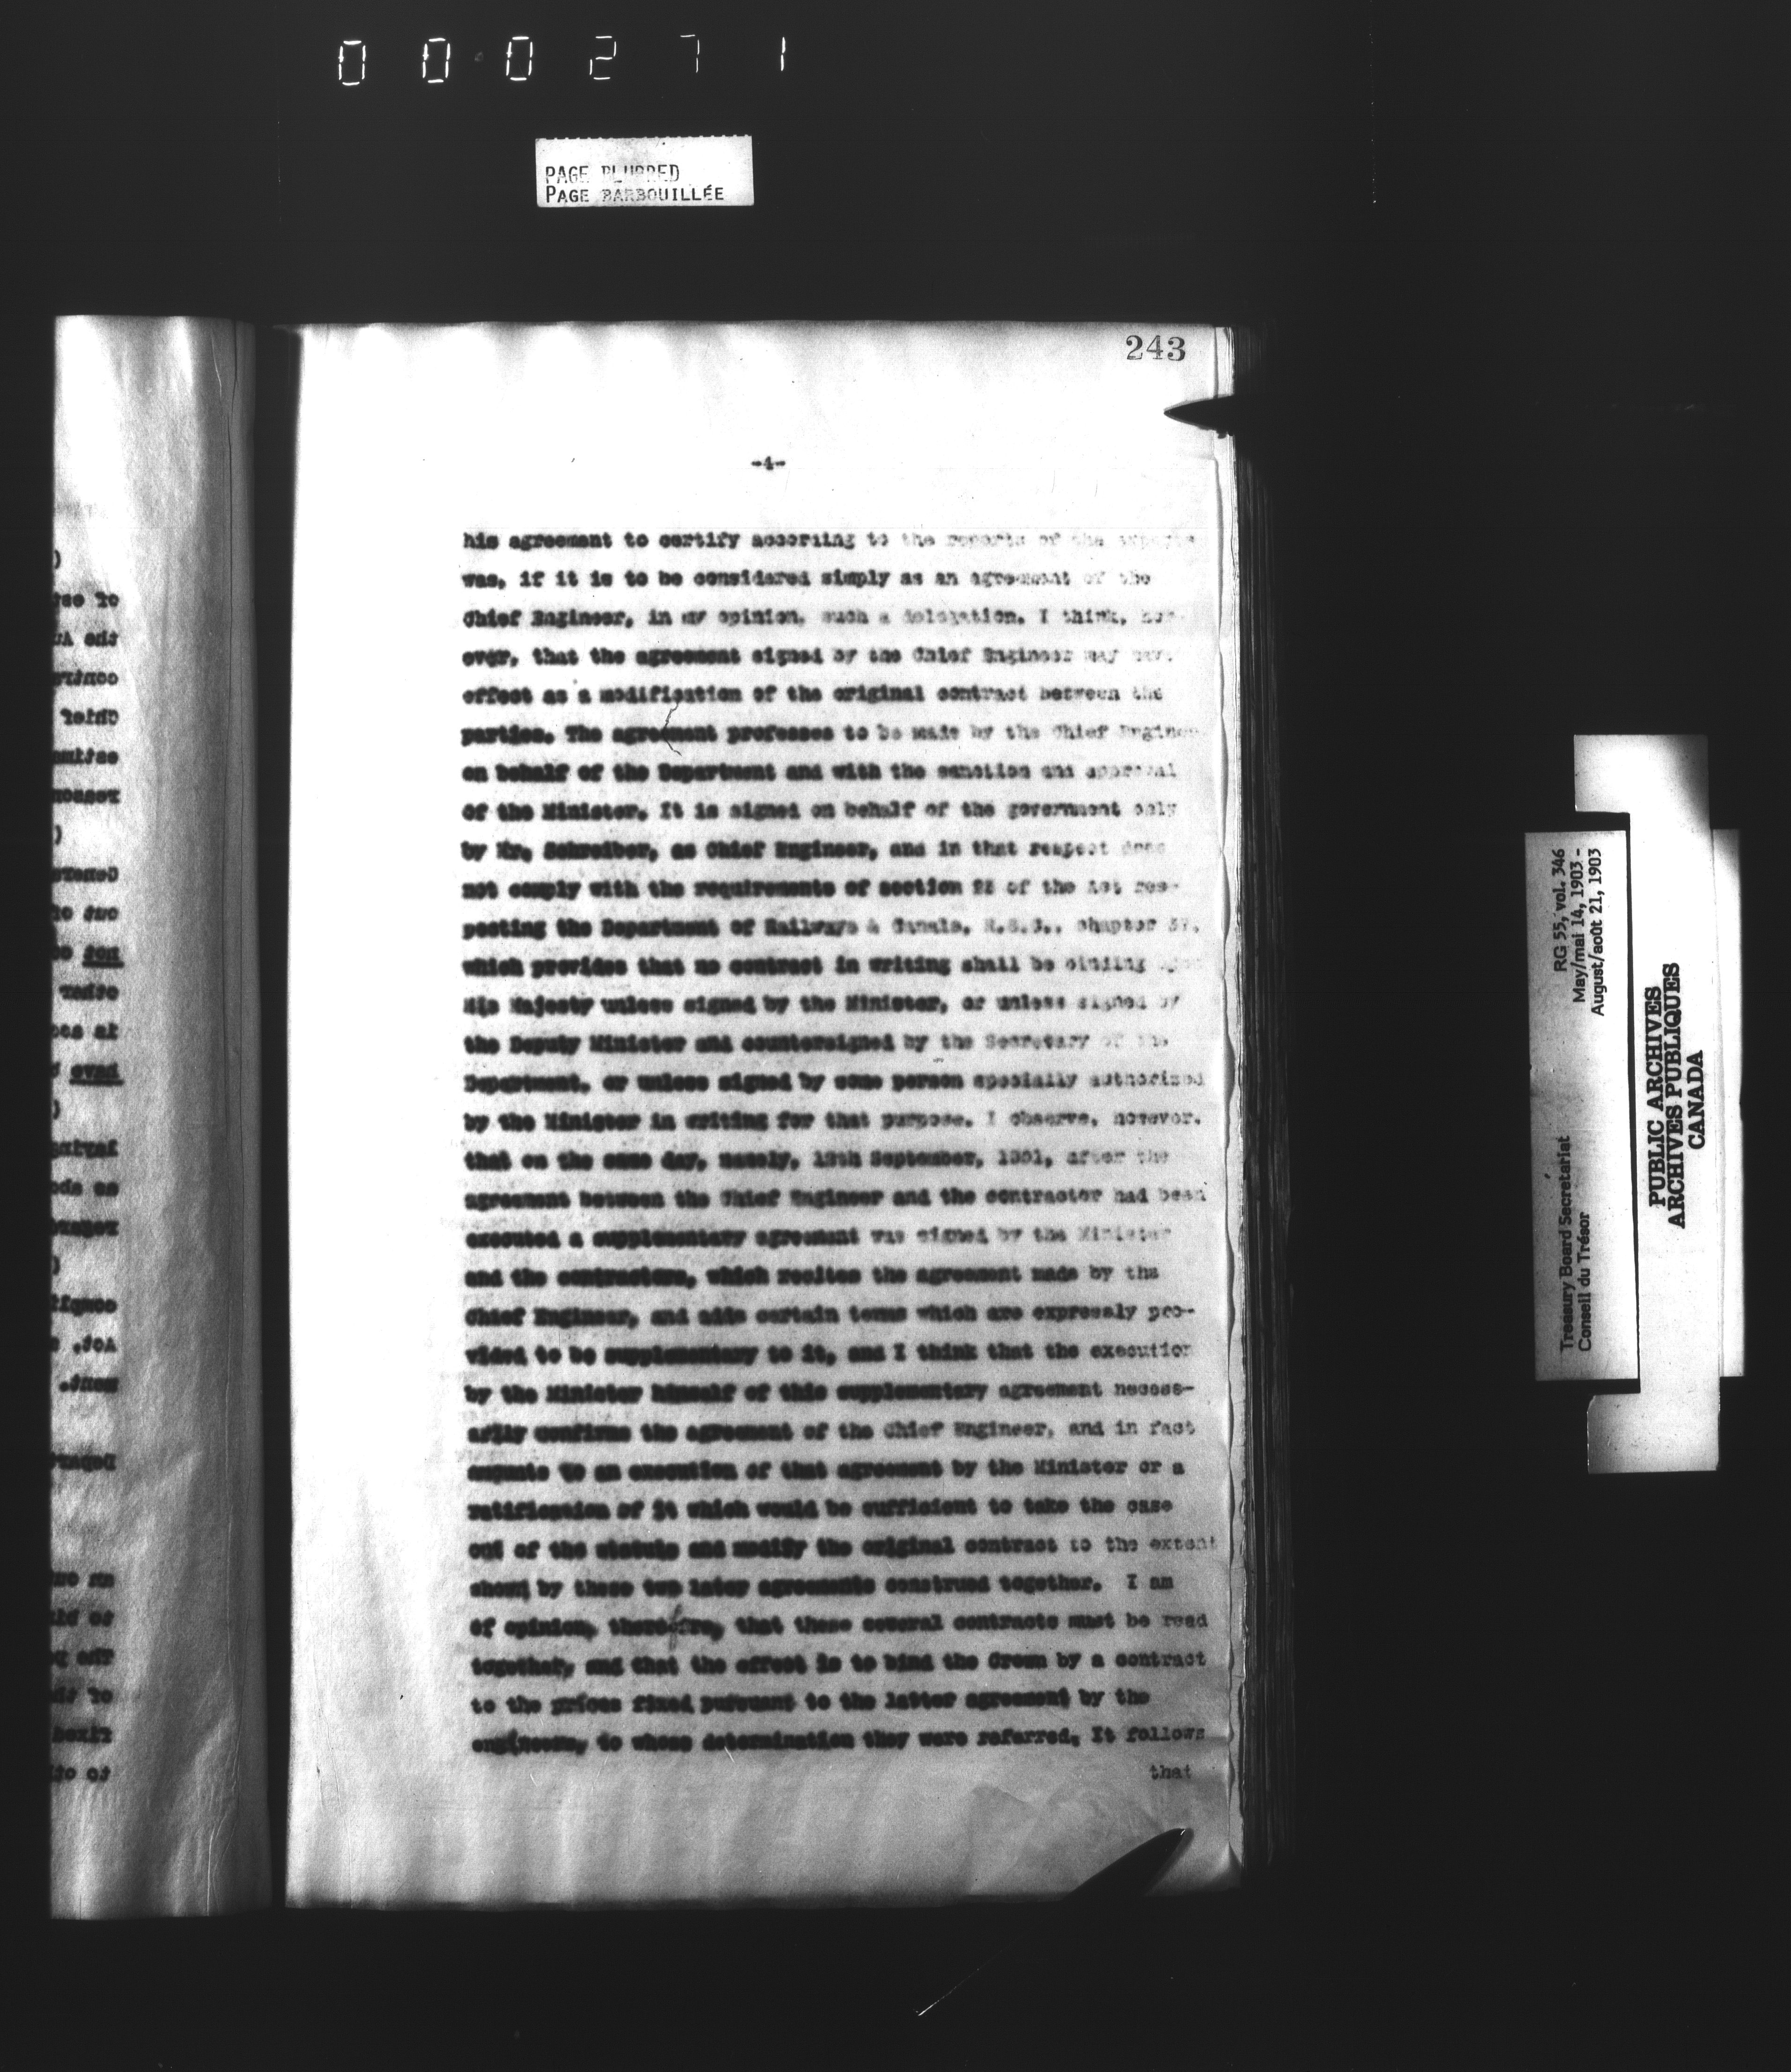 000271
PAGE BLURRED
PAGE BARBOUILLÉE
243
-4-
his agreement to certify according to the reports of the experts
was, if it is to be considered simply as an agreement of the
Chief Engineer, in my opinion, such a delegation. I think, how-
ever, that the agreement signed by the Chief Engineer may have
effect as a modification of the original contract between the
parties. The agreement professes to be made by the Chief Engineer
on behalf of the Department and with the sanction and approval
of the Minister. It is signed on behalf of the government only
by Mr. Schreiber, as Chief Engineer, and in that respect does
not comply with the requirements of section of the Act res-
pecting the Department of Railways & Canals, R.S.C., chapter 37,
which provides that no contract in writing shall be binding upon
His Majesty unless signed by the Minister, or unless signed by
the Deputy Minister and countersigned by the Secretary of the
Department, or unless signed by some person specially authorized
by the Minister in writing for that purpose. I observe, however,
that on the same day, namely, September, 1901, after the
agreement between the Chief Engineer and the contractor had been
executed a supplementary agreement was signed by the Minister
and the contractors, which recites the agreement made by the
Chief Engineer, and adds certain terms which are expressly pro-
vided to be supplementary to it, and I think that the execution
by the Minister himself of this supplementary agreement necess-
arily confirms the agreement of the Chief Engineer, and in fact
amounts to an execution of that agreement by the Minister or a
ratification of it which would be sufficient to take the case
out of the statute and modify the original contract to the extent
shown by these two later agreements construed together. I am
of opinion, therefore, that these several contracts must be read
together, and that the effect is to bind the Crown by a contract
to the prices fixed pursuant to the latter agreement by the
engineers, to whose determination they were referred. It follows
that
Treasury Board Secretariat RG 55, vol. 346
Conseil du Trésor May/mai 14, 1903 -
August/août 21, 1903
PUBLIC ARCHIVES
ARCHIVES PUBLIQUES
CANADA